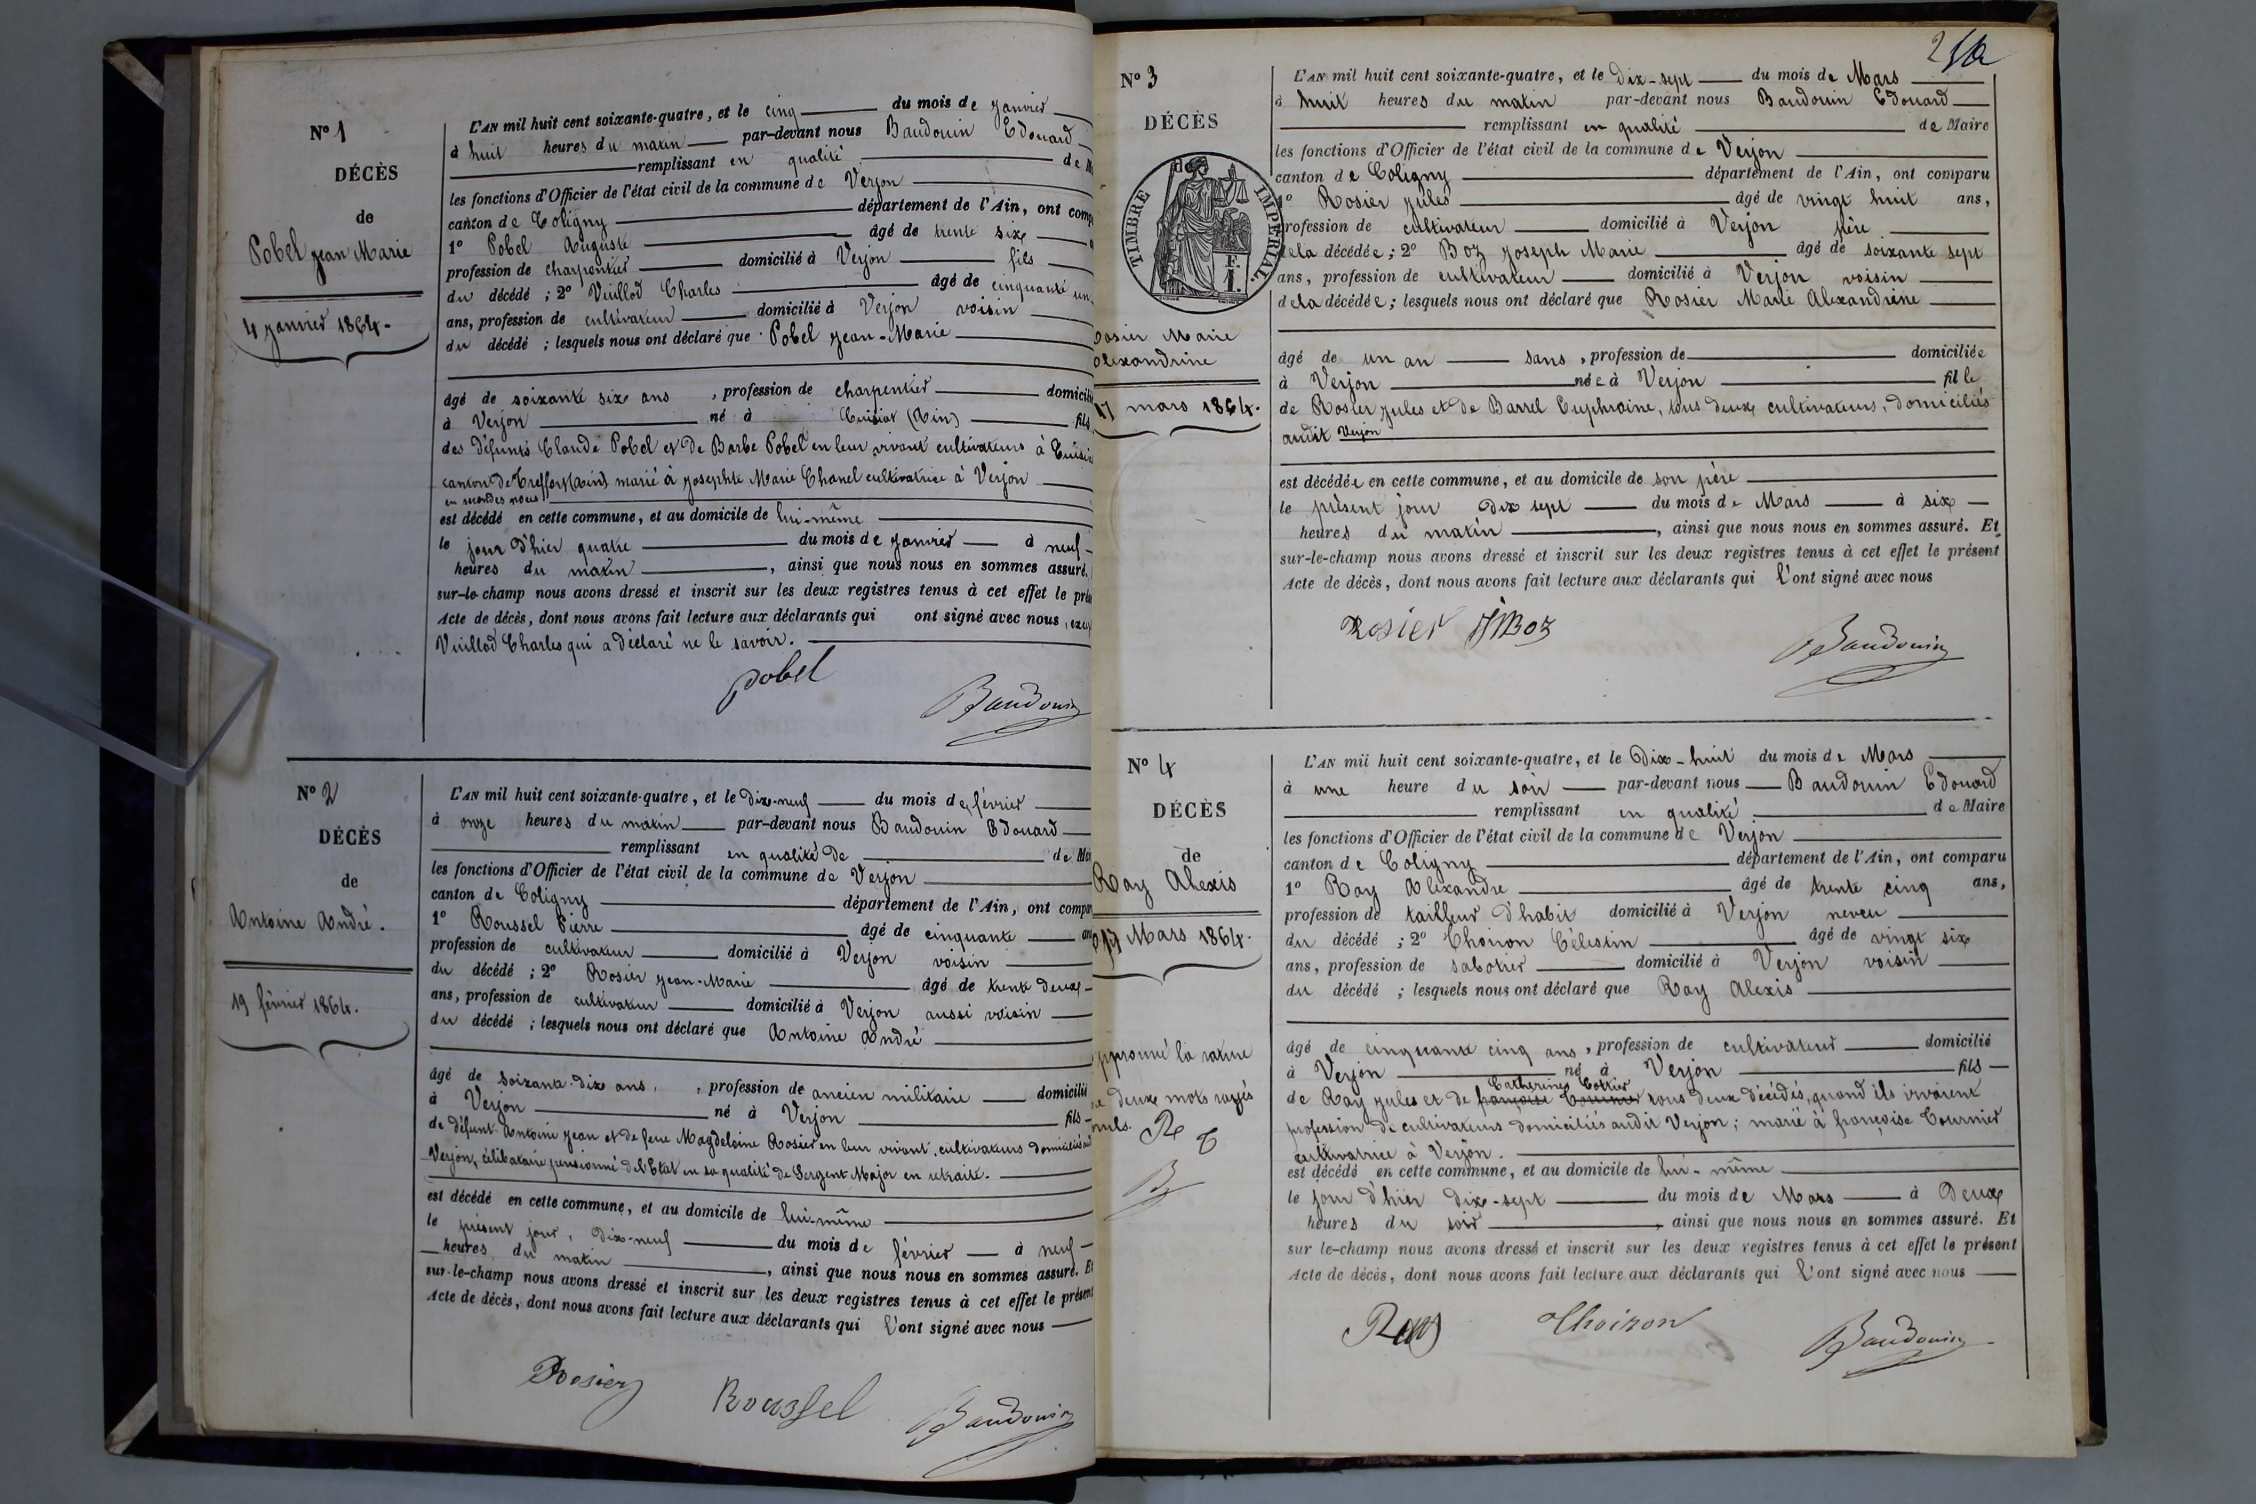 N° 1
DÉCÈS
de
Pobel Jean Marie
4 janvier 1864.
L'AN mil huit cent soixante-quatre, et le cinq du mois de janvier
à huit heures du matin par-devant nous Baudouin Edouard
remplissant en qualité de
les fonctions d'Officier de l'état civil de la commune de Verjon
canton de Coligny département de l'Ain, ont
1° Pobel Auguste âgé de trente six
profession de charpentier domicilié à Verjon fils
du décédé ; 2° Vuillod Charles âgé de cinquante un
ans, profession de cultivateur domicilié à Verjon voisin
du décédé ; lesquels nous ont déclaré que Pobel Jean-Marie
âgé de soixante six ans , profession de charpentier
à Verjon né à Cuisiat (Ain) fils
des défunts Claude Pobel et de Barbe Pobel en leur vivant cultivateurs à
canton de Treffort (Ain) marié à Josephte Marie Chanel cultivatrice à Verjon
en secondes noces
est décédé en cette commune, et au domicile de lui-même
le jour d'hier quatre du mois de janvier à neuf
heures du matin , ainsi que nous nous en sommes assuré.
sur-le-champ nous avons dressé et inscrit sur les deux registres tenus à cet effet le
Acte de décès, dont nous avons fait lecture aux déclarants qui ont signé avec nous,
Vuillod Charles qui a déclaré ne le savoir.
Pobel
Baudouin
N° 2
DÉCÈS
de
Antoine André.
19 février 1864.
L'AN mil huit cent soixante-quatre, et le Dix-neuf du mois de février
à onze heures du matin par-devant nous Baudouin Edouard
remplissant en qualité de de
les fonctions d'Officier de l'état civil de la commune de Verjon
canton de Coligny département de l'Ain, ont
1° Roussel Pierre âgé de cinquante
profession de cultivateur domicilié à Verjon voisin
du décédé ; 2° Rosier Jean-Marie âgé de trente deux
ans, profession de cultivateur domicilié à Verjon aussi voisin
du décédé ; lesquels nous ont déclaré que Antoine André
âgé de soixante-dix ans, , profession de ancien militaire domicilié
à Verjon né à Verjon fils
de défunt Antoine Jean et de feue Magdeleine Rosier en leur vivant, cultivateurs domiciliés
Verjon, célibataire pensionné de l'Etat en sa qualité de Sergent Major en retraite.
est décédé en cette commune, et au domicile de lui-même
le présent jour, dix-neuf du mois de février à neuf
heures du matin , ainsi que nous nous en sommes assuré.
sur-le-champ nous avons dressé et inscrit sur les deux registres tenus à cet effet le présent
Acte de décès, dont nous avons fait lecture aux déclarants qui l'ont signé avec nous
Rosier
Roussel
Baudouin
2
N° 3
DÉCÈS
de
TIMBRE IMPÉRIAL.
Marie
Alexandrine
17 mars 1864.
L'AN mil huit cent soixante-quatre, et le Dix-sept du mois de Mars
à huit heures du matin par-devant nous Baudouin Edouard
remplissant en qualité de Maire
les fonctions d'Officier de l'état civil de la commune de Verjon
canton de Coligny département de l'Ain, ont comparu
1° Rosier Jules âgé de vingt huit ans,
profession de cultivateur domicilié à Verjon père
de la décédée ; 2° Boz Joseph Marie âgé de soixante sept
ans, profession de cultivateur domicilié à Verjon voisin
de la décédée ; lesquels nous ont déclaré que Rosier Marie Alexandrine
âgé de un an sans , profession de domiciliée
à Verjon née à Verjon fille
de Rosier Jules et de Barrel Euphroine, tous deux cultivateurs, domiciliés
audit Verjon
est décédée en cette commune, et au domicile de son père
le présent jour dix sept du mois de Mars à six
heures du matin , ainsi que nous nous en sommes assuré. Et
sur-le-champ nous avons dressé et inscrit sur les deux registres tenus à cet effet le présent
Acte de décès, dont nous avons fait lecture aux déclarants qui l'ont signé avec nous
Rosier JMBoz
Baudouin
N° 4
DÉCÈS
de
Ray Alexis
17 Mars 1864.
la rature
deux mots rayés
nuls.
L'AN mil huit cent soixante-quatre, et le Dix-huit du mois de Mars
à une heure du soir par-devant nous Baudouin Edouard
remplissant en qualité de Maire
les fonctions d'Officier de l'état civil de la commune de Verjon
canton de Coligny département de l'Ain, ont comparu
1° Ray Alexandre âgé de trente cinq ans,
profession de tailleur d'habit domicilié à Verjon neveu
du décédé ; 2° Choiron Célestin âgé de vingt six
ans, profession de sabotier domicilié à Verjon voisin
du décédé ; lesquels nous ont déclaré que Ray Alexis
âgé de cinquante cinq ans , profession de cultivateur domicilié
à Verjon né à Verjon fils
Catherine Cottier
de Ray Jules et de françoise Tournier tous deux décédés, quand ils vivaient
profession de cultivateurs domiciliés audit Verjon ; marié à françoise Tournier
cultivatrice à Verjon.
est décédé en cette commune, et au domicile de lui-même
le jour d'hier dix-sept du mois de Mars à Deux
heures du soir , ainsi que nous nous en sommes assuré. Et
sur-le-champ nous avons dressé et inscrit sur les deux registres tenus à cet effet le présent
Acte de décès, dont nous avons fait lecture aux déclarants qui l'ont signé avec nous
Ray
Choiron
Baudouin